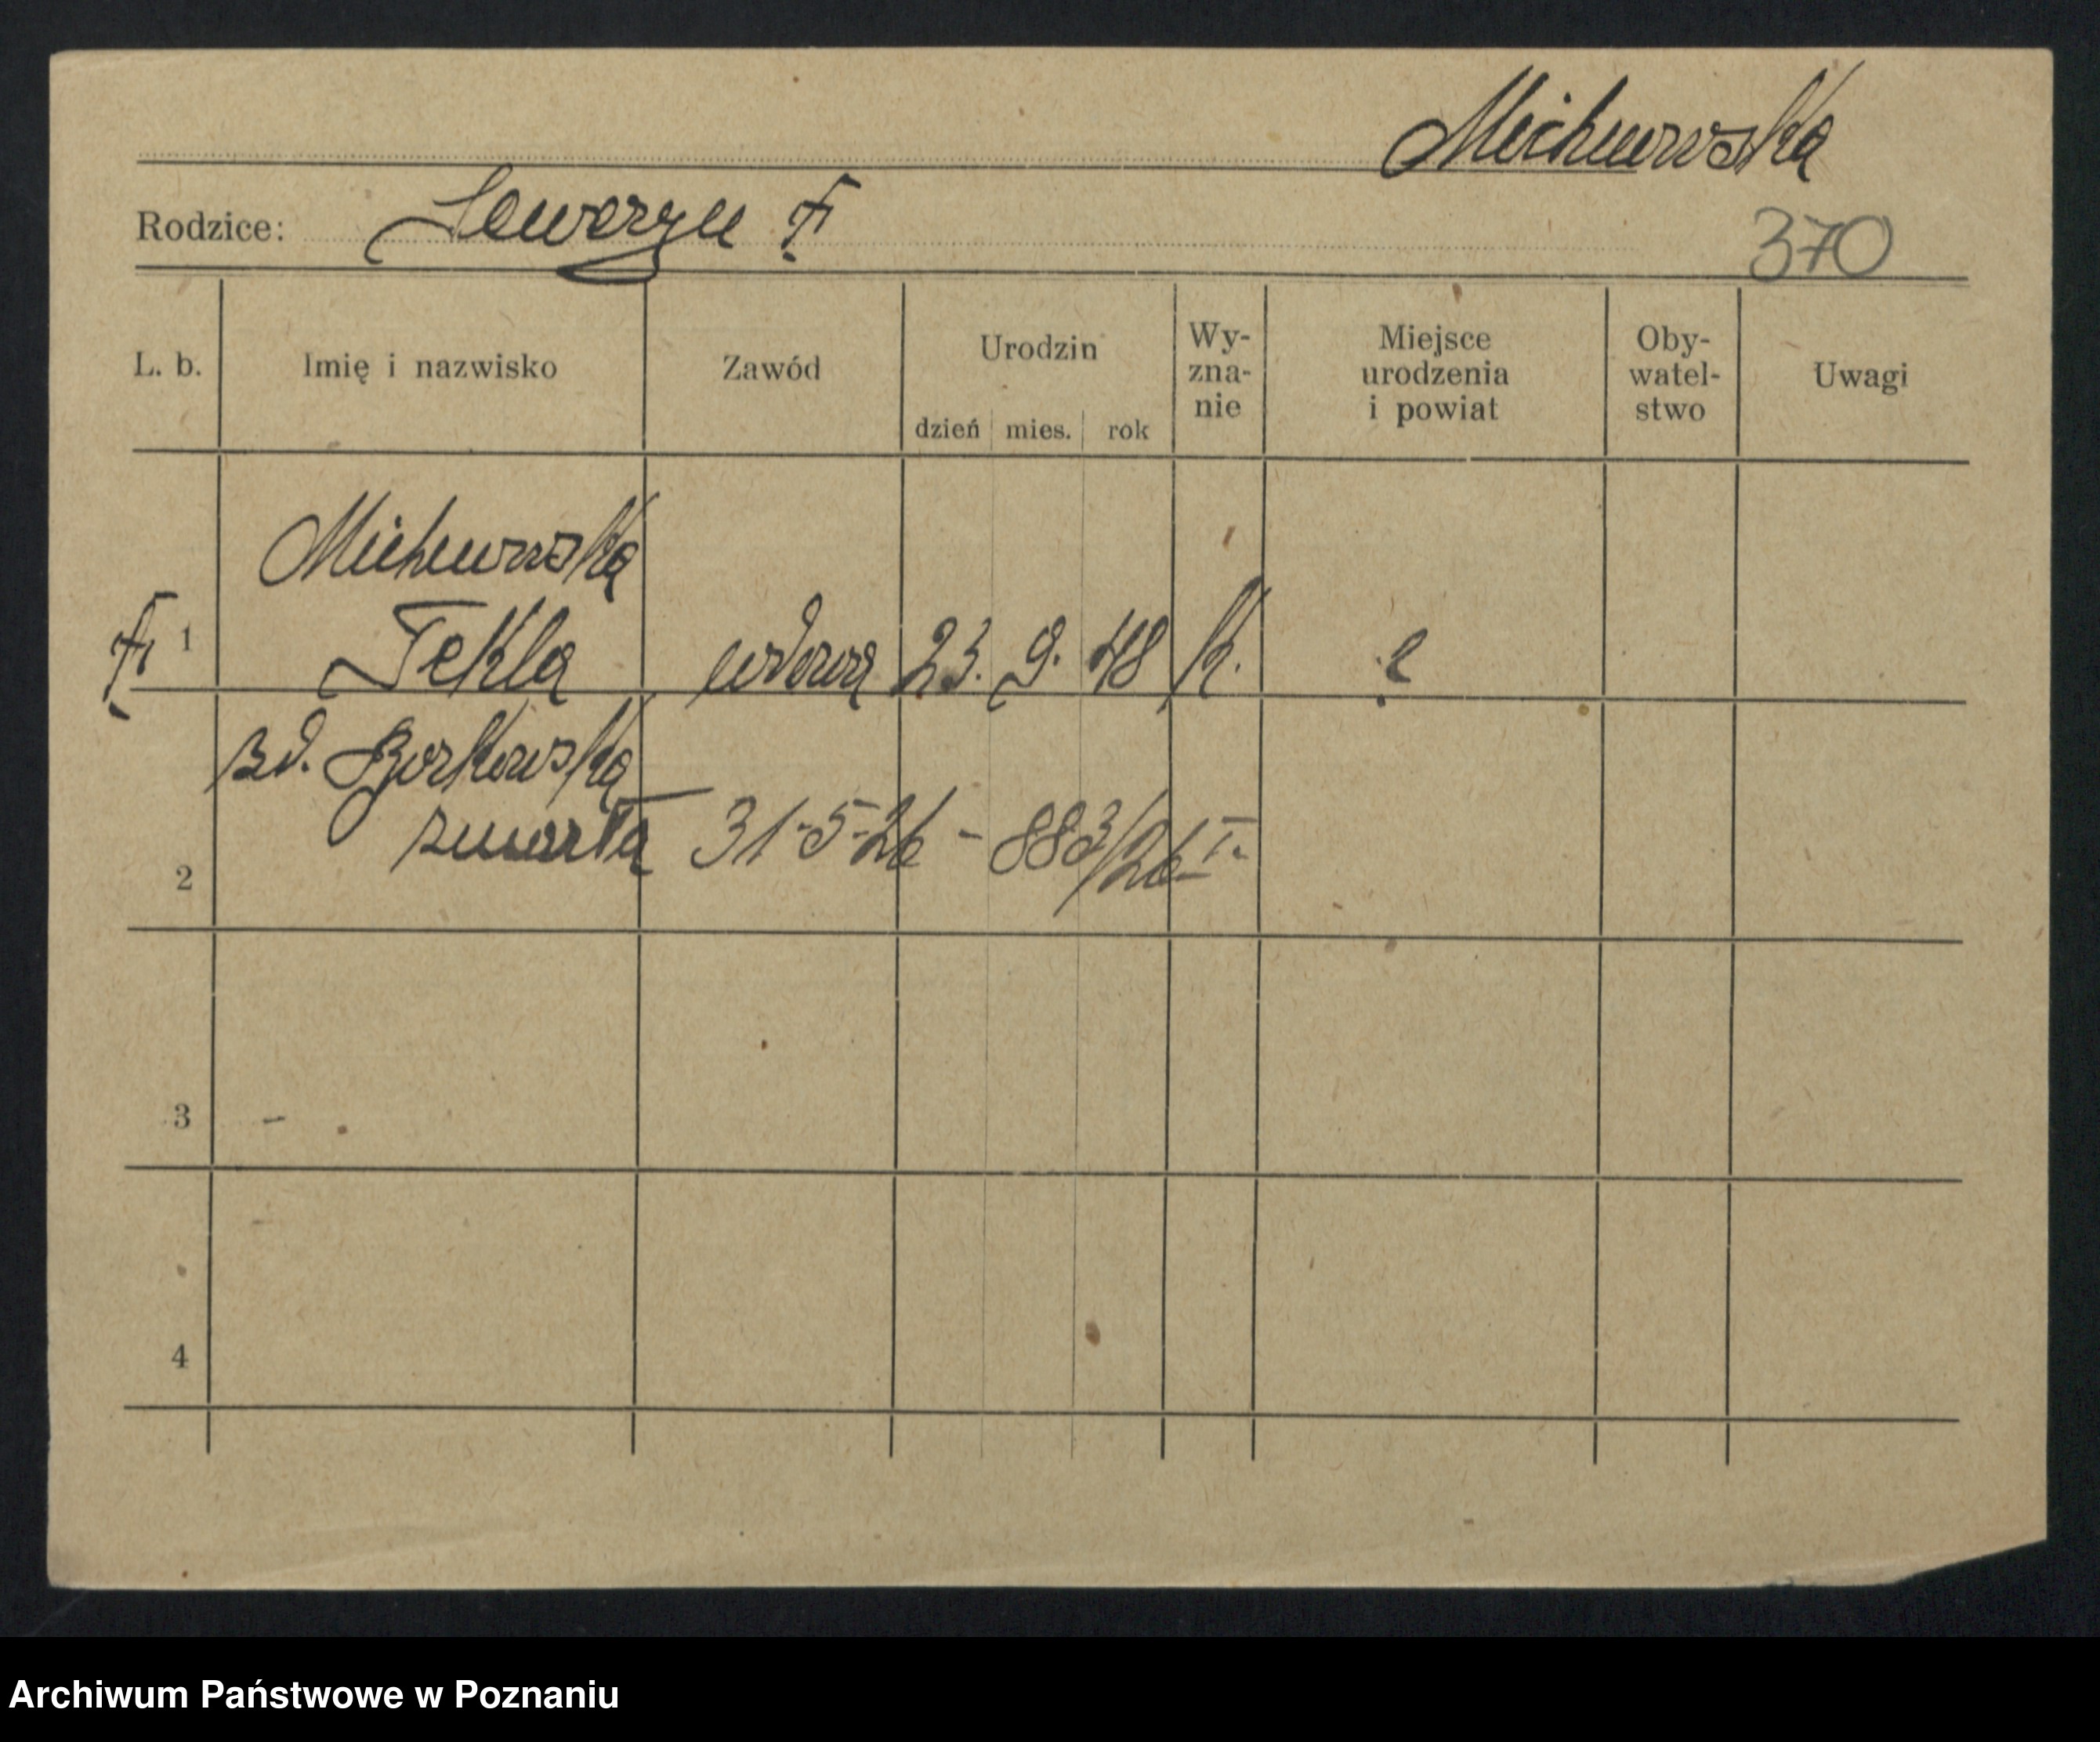 Michnowska
Rodzice: Seweryn †
370
L. b.
Imię i nazwisko
Zawód
Urodzin
dzień mies. rok
Wy-
zna-
nie
Miejsce
urodzenia
i powiat
Oby-
watel-
stwo
Uwagi
Michnowska
† 1 Tekla wdowa 23. 9. 48 k. ?
zd. Borkowska
zmarła 31-5-26 - 883/26 I.
2
3 -
4
Archiwum Państwowe w Poznaniu